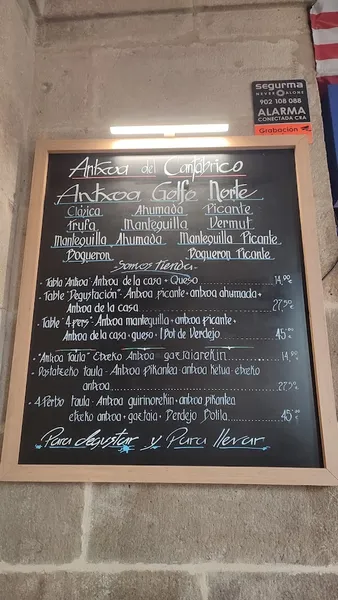 segurma
NEVER ALONE
902 108 088
ALARMA
CONECTADA CRA
Grabación
Antxoa del Cantábrico
Antxoa Golfo Norte
Clásica Ahumada Picante
Trufa Mantequilla Vermut
Mantequilla Ahumada Mantequilla Picante
Boqueron Boqueron Picante
Somos tienda
· Tabla "Antxoa" Antxoa de la casa + Queso 14,00€
· Table "Degustación" Antxoa picante + antxoa ahumada +
Antxoa de la casa 27,50€
· Table "4 pers" - Antxoa mantequilla + antxoa picante +
Antxoa de la casa + queso + 1 Bot de Verdejo 45€
· "Antxoa Taula" Etxeko Antxoa gaztaiarekin 14,00€
· Dastatzeko taula - Antxoa Pikantea + antxoa ketua + etxeko
antxoa 27,50€
· 4 Pertso taula - Antxoa gurinarekin + antxoa pikantea
etxeko antxoa + gaztaia + Berdejo Botila 45€
Para degustar y Para llevar